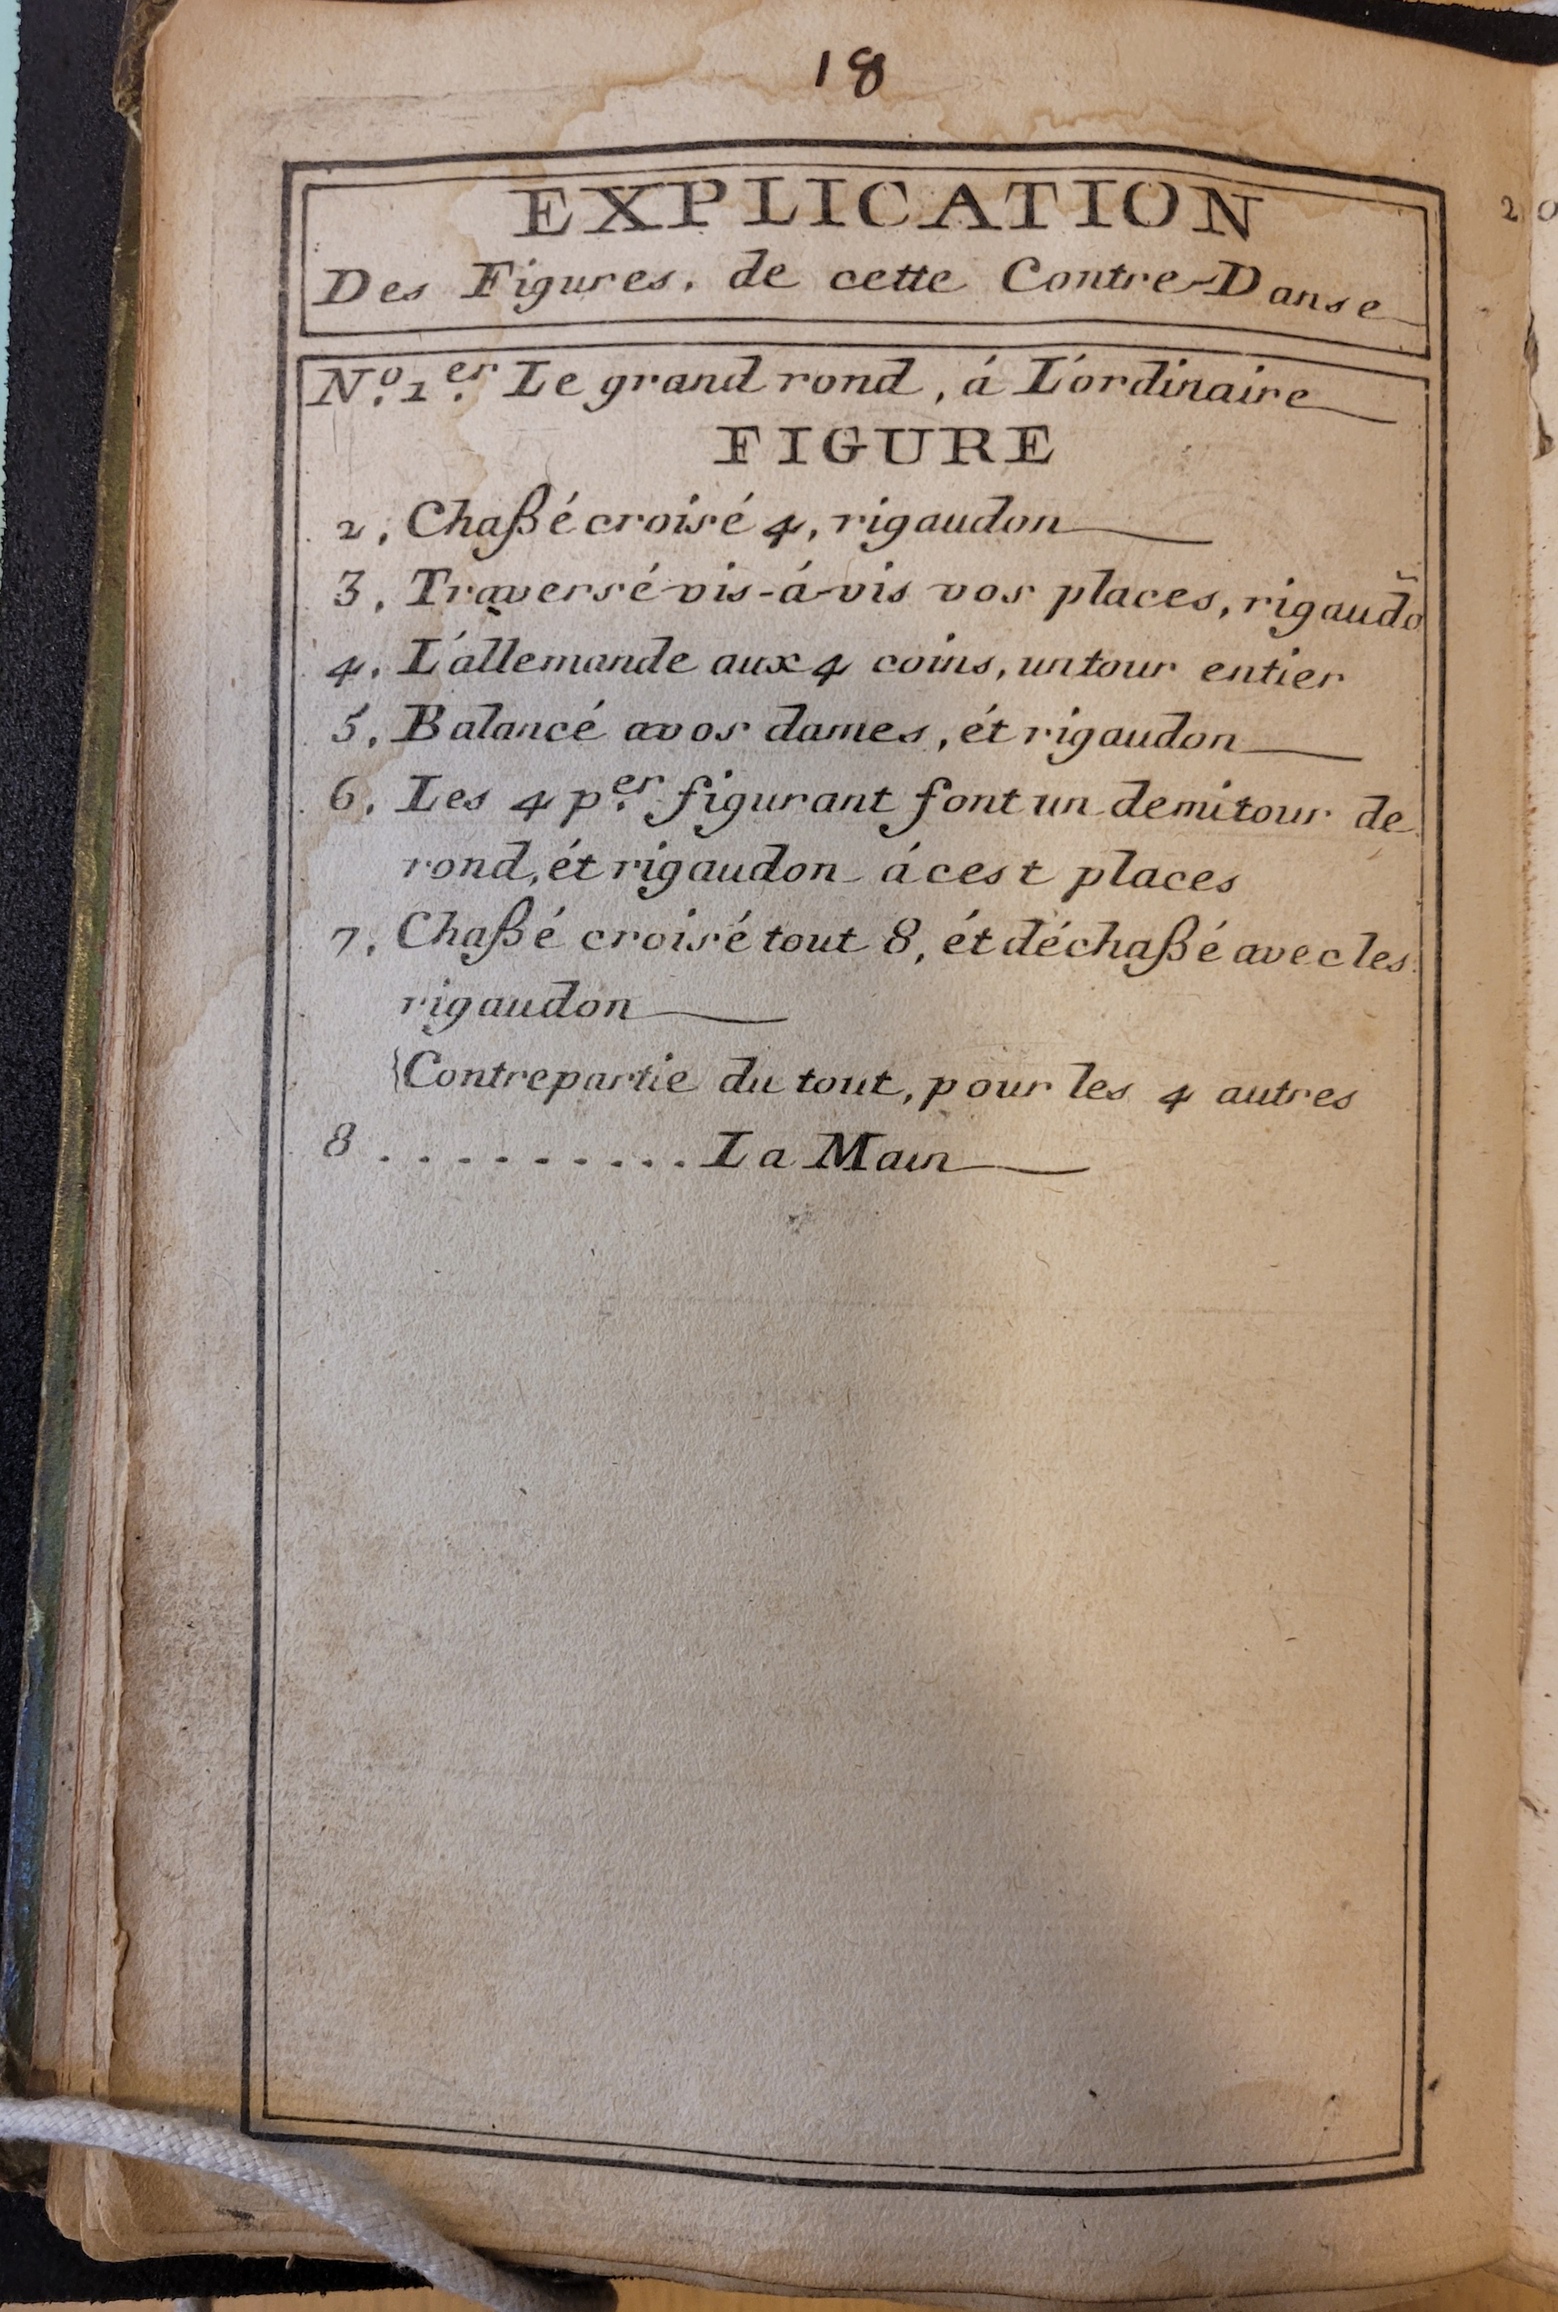 18
EXPLICATION
Des Figures, de cette Contre-Danse
N.º 1.er Le grand rond, á L'ordinaire
FIGURE
2, Chaßé croisé 4, rigaudon
3, Traversé vis-á-vis vos places, rigaudõ
4, L'allemande aux 4 coins, un tour entier
5, Balancé a vos dames, ét rigaudon
6, Les 4 p.er figurant font un demi tour de
rond, ét rigaudon á cest places
7, Chaßé croisé tout 8, ét déchaßé avec les
rigaudon
{Contrepartie du tout, pour les 4 autres
8 .......... La Main
20